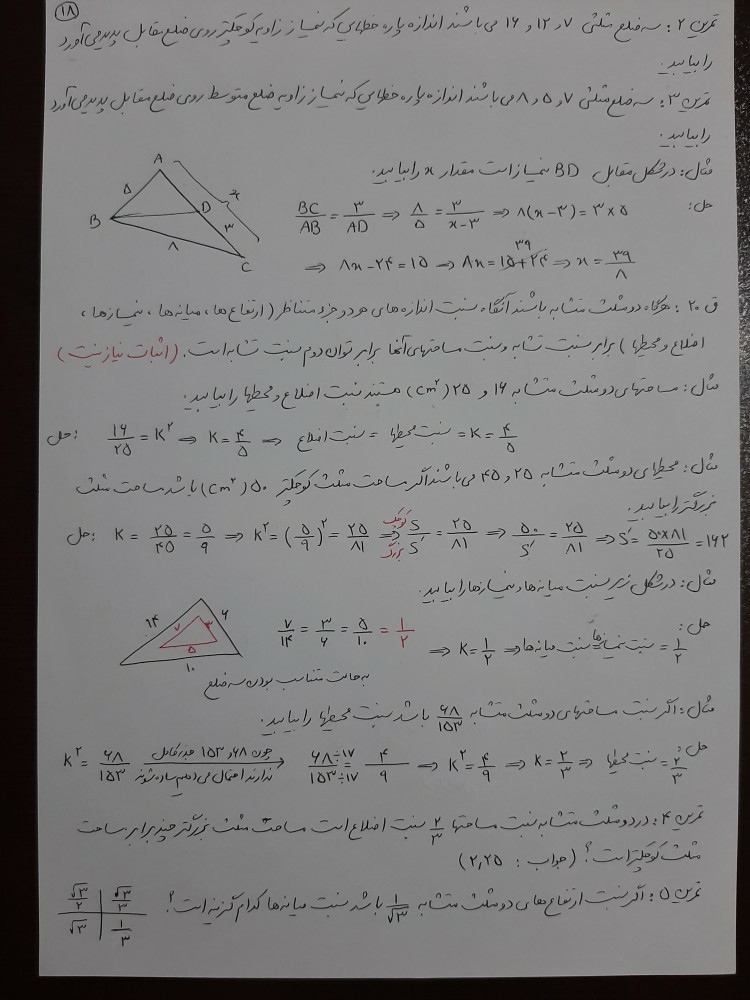 ۱۸
تمرین ۲: سه ضلع مثلثی ۷ و ۱۲ و ۱۶ می باشند اندازه پاره خطهایی که نیمساز زاویه کوچکتر روی ضلع مقابل پدید می آورد
را بیابید.
تمرین ۳: سه ضلع مثلثی ۷ و ۵ و ۸ می باشند اندازه پاره خطهایی که نیمساز زاویه ضلع متوسط روی ضلع مقابل پدید می آورد
را بیابید.
مثال: در شکل مقابل BD نیمساز است مقدار x را بیابید.
A
B
C
D
۵
x
۳
۸
حل: BC/AB = ۳/AD ⇒ ۸/۵ = ۳/x-۳ ⇒ ۸(x-۳) = ۳×۵
⇒ ۸x-۲۴=۱۵ ⇒ ۸x = ۱۵+۲۴ ⇒ x = ۳۹/۸
۳۹
ق ۲۰: هرگاه دو مثلث متشابه باشند آنگاه نسبت اندازه های هر دو جزء متناظر (ارتفاع ها، میانه ها، نیمسازها،
اضلاع و محیطها) برابر نسبت تشابه و نسبت مساحتهای آنها برابر توان دوم نسبت تشابه است. (اثبات نیاز نیست)
مثال: مساحتهای دو مثلث متشابه ۱۶ و ۲۵ (cm²) هستند نسبت اضلاع و محیطها را بیابید.
حل: ۱۶/۲۵ = K² ⇒ K = ۴/۵ ⇒ نسبت اضلاع = نسبت محیطها = K = ۴/۵
مثال: محیطهای دو مثلث متشابه ۲۵ و ۴۵ می باشند اگر مساحت مثلث کوچکتر ۵۰ (cm²) باشد مساحت مثلث
بزرگتر را بیابید.
حل: K = ۲۵/۴۵ = ۵/۹ ⇒ K² = (۵/۹)² = ۲۵/۸۱ ⇒ کوچک S/بزرگ S′ = ۲۵/۸۱ ⇒ ۵۰/S′ = ۲۵/۸۱ ⇒ S′ = ۵۰×۸۱/۲۵ = ۱۶۲
مثال: در شکل زیر نسبت میانه ها و نیمسازها را بیابید.
۱۴
۷
۳
۶
۵
۱۰
حل: ۷/۱۴ = ۳/۶ = ۵/۱۰ = ۱/۲ ⇒ K = ۱/۲ ⇒ نسبت میانه ها = نسبت نیمسازها = ۱/۲
به حالت متناسب بودن سه ضلع
مثال: اگر نسبت مساحتهای دو مثلث متشابه ۶۸/۱۵۳ باشد نسبت محیطها را بیابید.
حل: K² = ۶۸/۱۵۳ چون ۶۸ و ۱۵۳ جذر کامل ندارند احتمال می دهیم ساده شوند ۶۸÷۱۷/۱۵۳÷۱۷ = ۴/۹ ⇒ K² = ۴/۹ ⇒ K = ۲/۳ ⇒ نسبت محیطها = ۲/۳
تمرین ۴: در دو مثلث متشابه نسبت مساحتها ۲/۳ نسبت اضلاع است مساحت مثلث بزرگتر چند برابر مساحت
مثلث کوچکتر است؟ (جواب: ۲,۲۵)
تمرین ۵: اگر نسبت ارتفاع های دو مثلث متشابه ۱/√۳ باشد نسبت میانه ها کدام گزینه است؟
√۳/۲ √۳/۳
√۳ ۱/۳